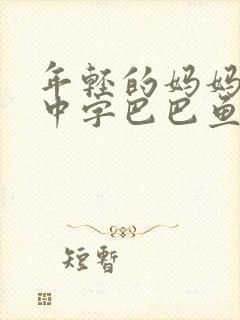 年轻的妈妈
中字巴巴鱼
短暂